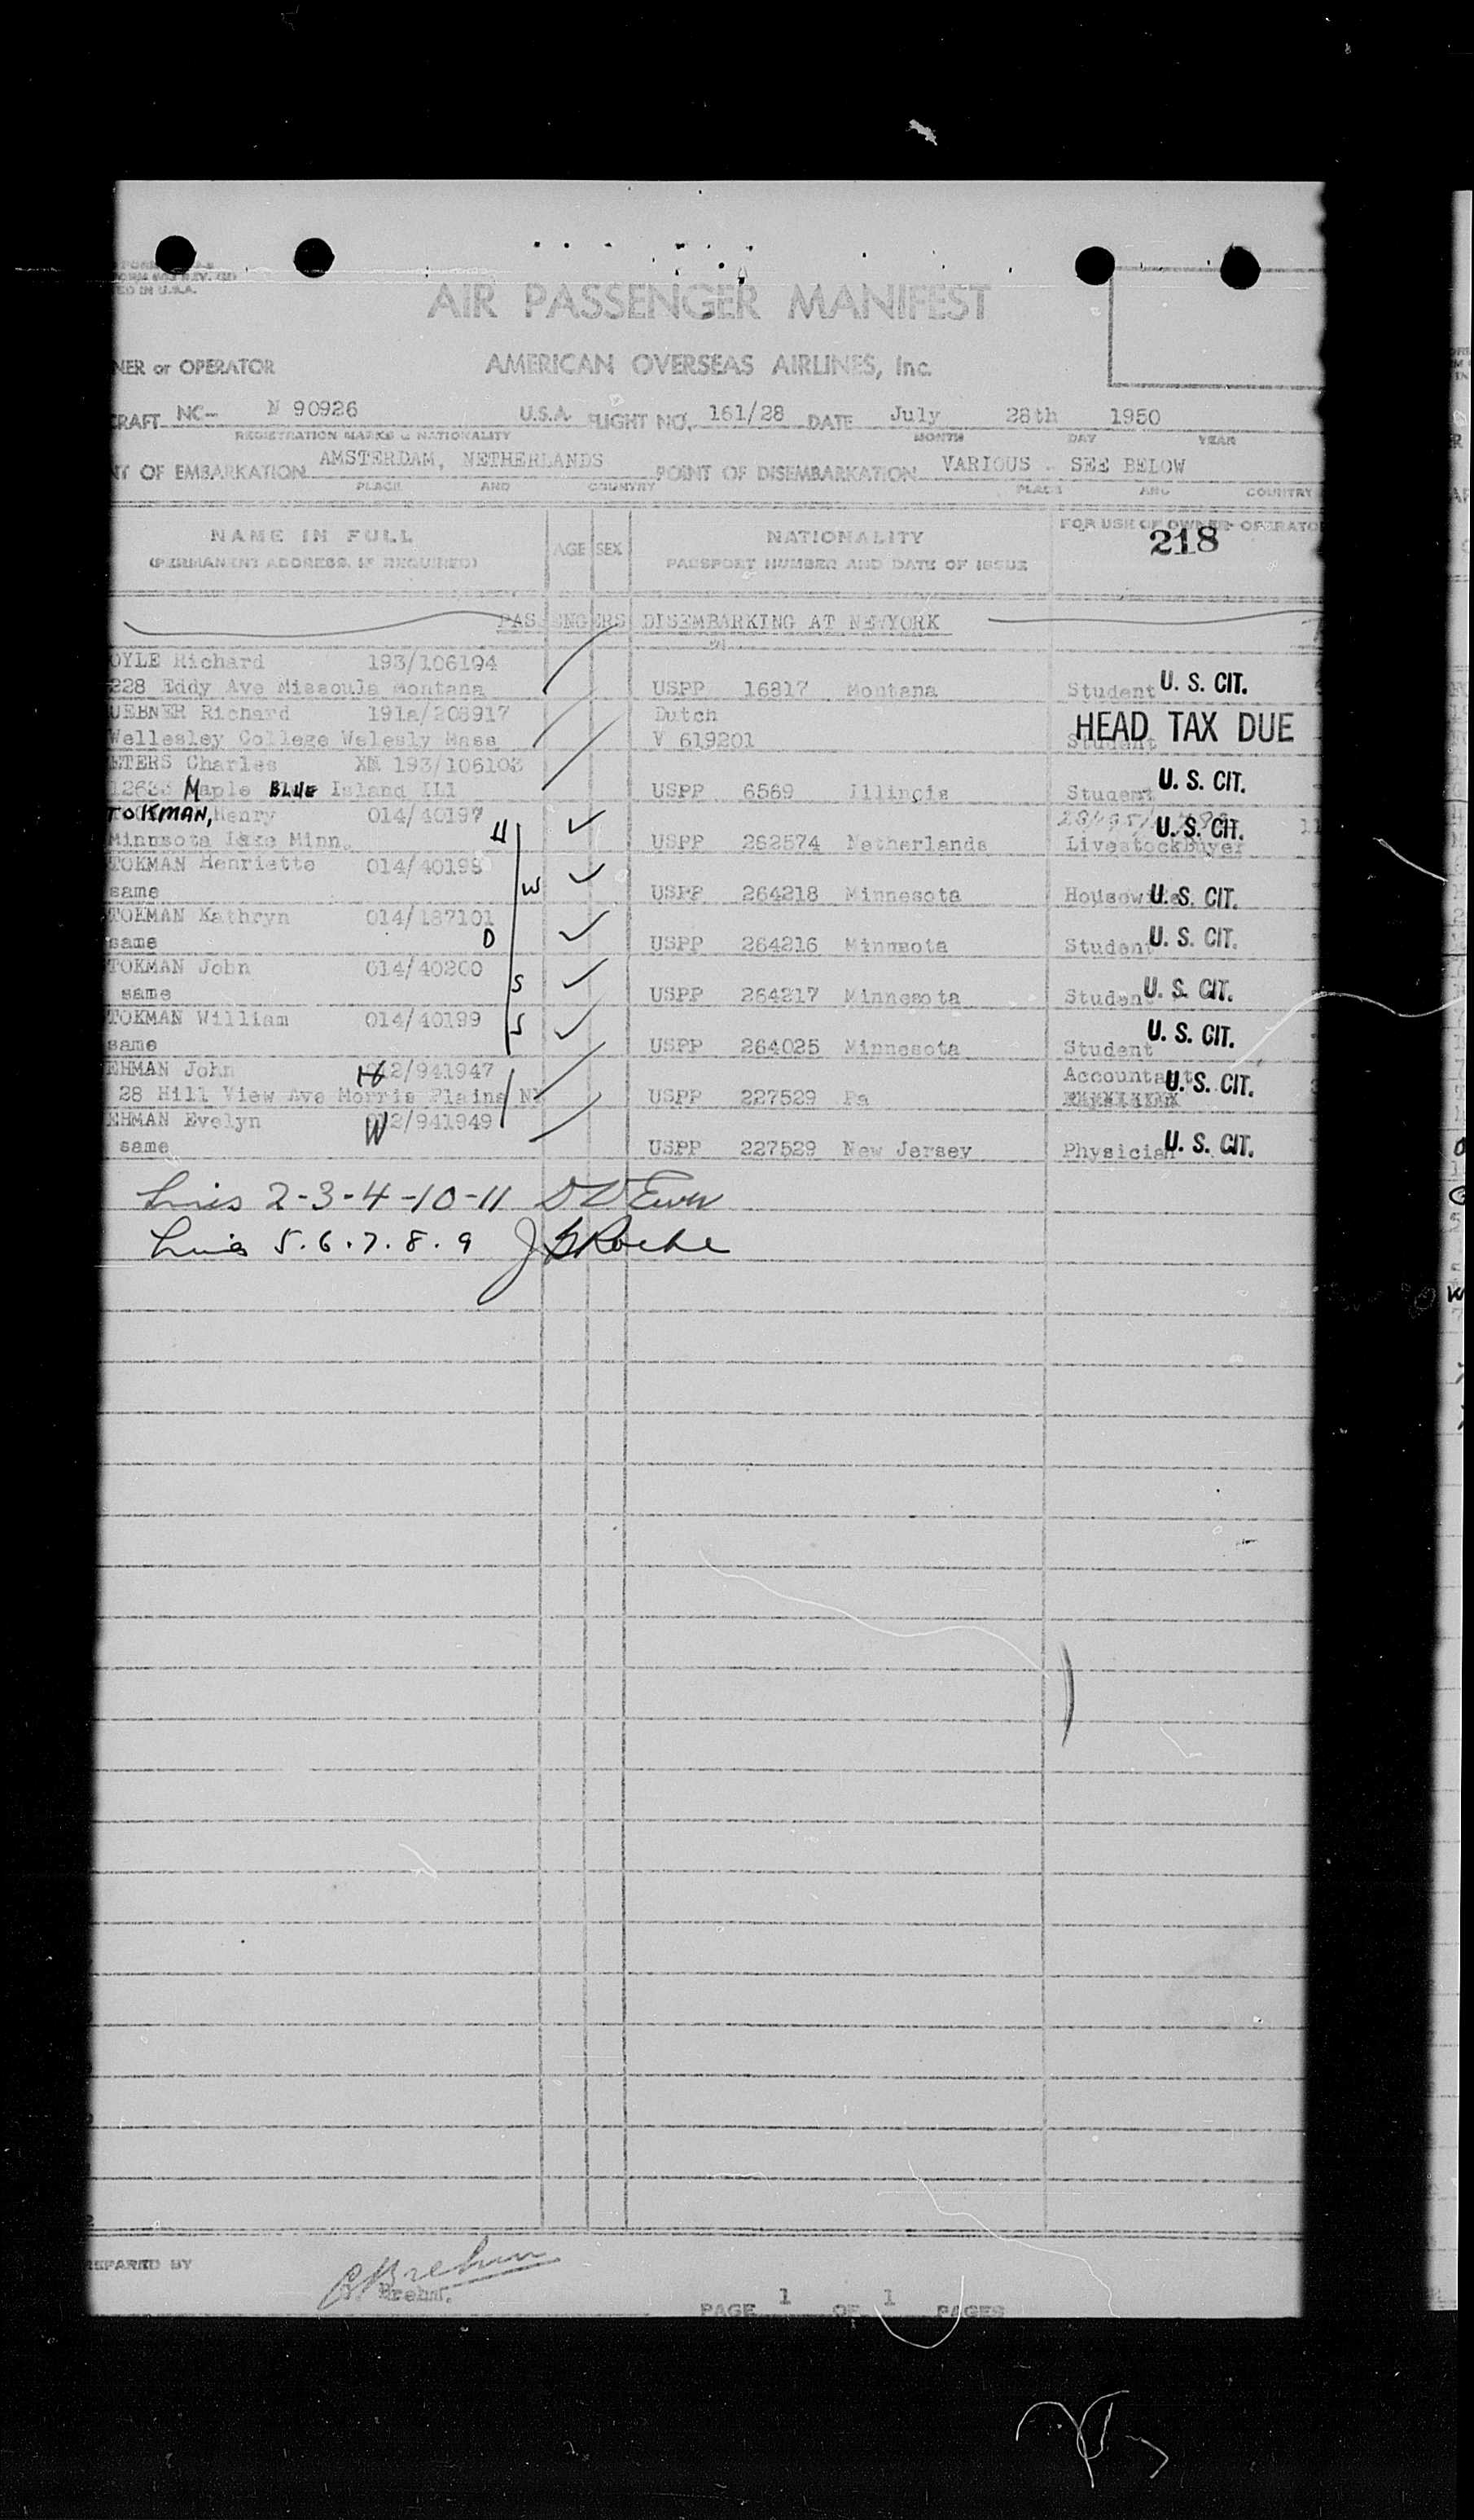 ED IN U.S.A.
AIR PASSENGER MANIFEST
NER or OPERATOR AMERICAN OVERSEAS AIRLINES, Inc.
CRAFT NC- N 90926 U.S.A. FLIGHT NO. 161/28 DATE July 28th 1950
REGISTRATION MARKS & NATIONALITY MONTH DAY YEAR
NT OF EMBARKATION AMSTERDAM, NETHERLANDS POINT OF DISEMBARKATION VARIOUS - SEE BELOW
PLACE AND COUNTRY PLACE AND COUNTRY
NAME IN FULL AGE SEX NATIONALITY FOR USE OF OWNER OPERATO
(PERMANENT ADDRESS, IF REQUIRED) PASSPORT NUMBER AND DATE OF ISSUE 218
PASSENGERS DISEMBARKING AT NEWYORK
OYLE Richard 193/106194
228 Eddy Ave Missoula Montana USPP 16817 Montana Student U. S. CIT.
UEBNER Richard 191a/208917 Dutch HEAD TAX DUE
Wellesley College Welesly Mass V 619201 Student
ETERS Charles XM 193/106103
Maple BLUE Island Ill USPP 6569 Illinois Student U. S. CIT.
TOKMAN, Henry 014/40197 H
Minnsota Lake Minn. USPP 262574 Netherlands Livestockbuyer U. S. CIT.
TOKMAN Henriette 014/40198
same W USPP 264218 Minnesota Housewife U. S. CIT.
TOKMAN Kathryn 014/187101
same D USPP 264216 Minnsota Student U. S. CIT.
TOKMAN John 014/40200
same S USPP 264217 Minnesota Student U. S. CIT.
TOKMAN William 014/40199
same S USPP 264025 Minnesota Student U. S. CIT.
EHMAN John H 012/941947 Accountant
28 Hill View Ave Morris Plains NY USPP 227529 Pa U. S. CIT.
EHMAN Evelyn W 012/941949
same USPP 227529 New Jersey Physician U. S. CIT.
Lines 2-3-4-10-11
Lines 5.6.7.8.9 J Roche
REPARED BY Brehm
Brehm.
PAGE 1 OF 1 PAGES